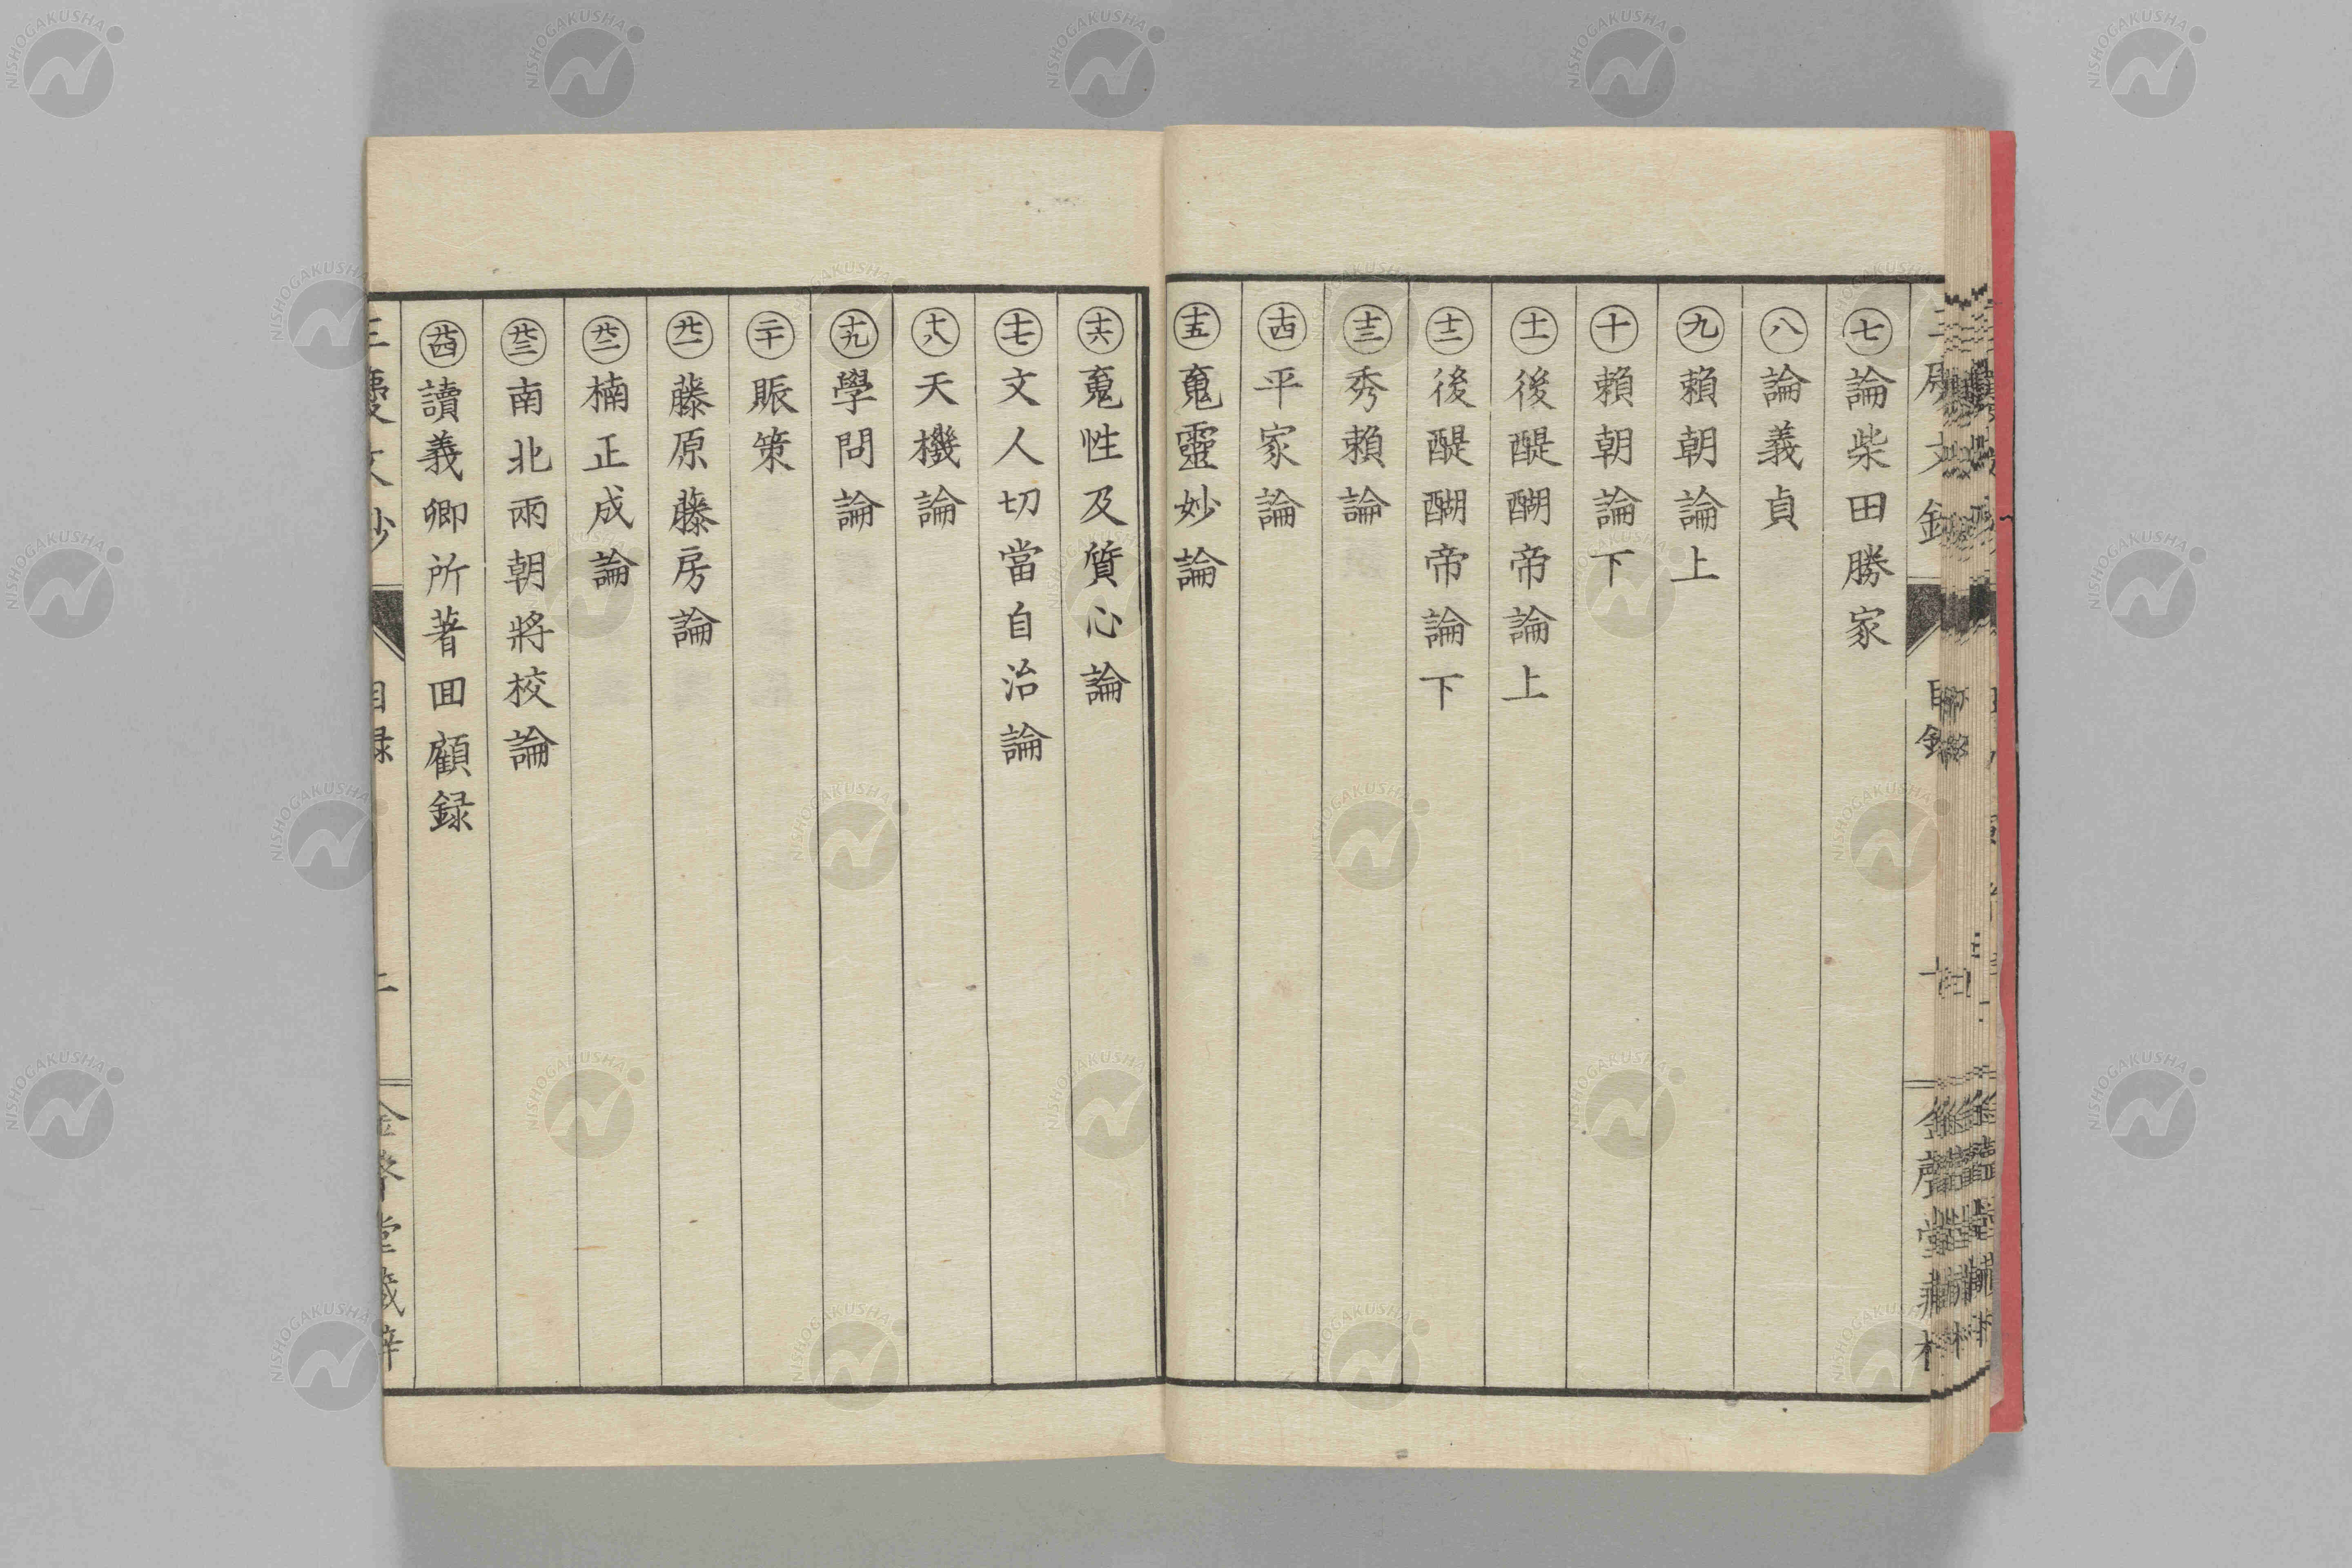 ㊆論柴田勝家
㊇論義貞
㊈賴朝論上
㊉賴朝論下
十一後醍醐帝論上
十二後醍醐帝論下
十三秀賴論
十四平家論
十五䰟靈妙論
十六䰟性及質心論
十七文人切當自治論
十八天機論
十九學問論
二十賑策
廿一藤原藤房論
廿二楠正成論
廿三南北兩朝將校論
廿四讀義卿所著囬顧録
NISHOGAKUSHA